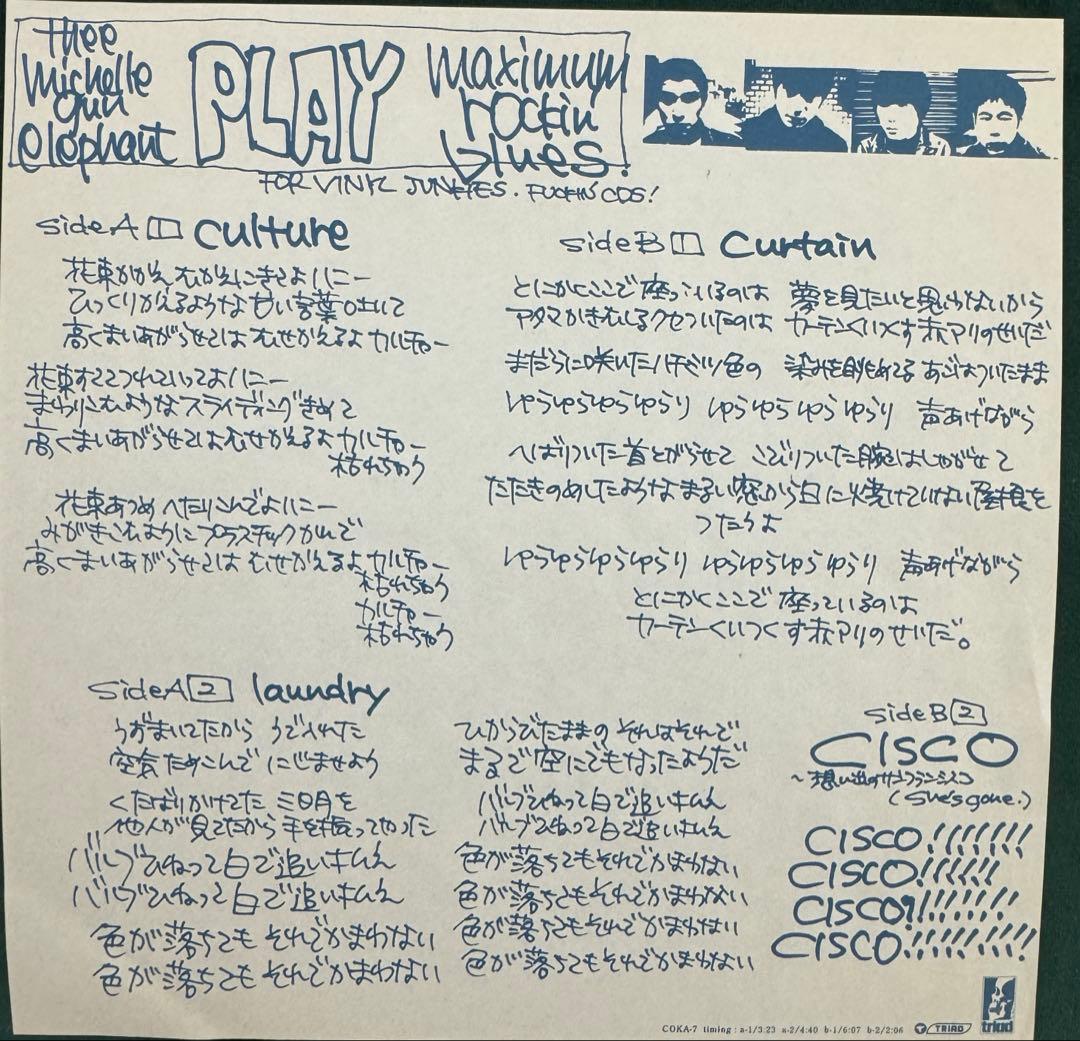 thee
michelle
gun
elephant
PLAY
maximum
rockin
blues!
FOR VINYL JUNKIES. FUCKIN' CDS!
side A 1 culture
花束かかえ むかえにきてよハニー
ひっくりかえるような甘い言葉吐いて
高くまいあがらせては むせかえるよ カルチャー
花束すててつれていってよハニー
まわりこむようなスライディングきめて
高くまいあがらせてはむせかえるよカルチャー
枯れちゃう
花束あつめ へたりこんでよハニー
みがきこむようにプラスチックかんで
高くまいあがらせては むせかえるよ カルチャー
枯れちゃう
カルチャー
枯れちゃう
side A 2 laundry
うずまいてたから うで入れた
空気ためこんで にじませよう
くたばりかけてた 三日月を
他人が見てたから 手を振ってやった
バルブひねって白で追いまんえ
バルブひねって白で追いまんえ
色が落ちても それでかまわない
色が落ちても それでかまわない
ひからびたままの それはそれで
まるで空にでもなったようだ
バルブひねって白で追いまんえ
バルブひねって白で追いまんえ
色が落ちてもそれでかまわない
色が落ちてもそれでかまわない
色が落ちてもそれでかまわない
色が落ちてもそれでかまわない
side B 1 curtain
とにかくここで座っているのは 夢を見たいと思わないから
アタマかきむしるクセついたのは カーテンくいつくす赤アリのせいだ
まだらに咲いたハチミツ色の 染みを眺めてる あごはついたまま
ゆらゆらゆらゆらり ゆらゆらゆらゆらり 声あげながら
へばりついた首とがらせて こびりついた腕はしゃがせて
たたきのめしたような まるい窓から 日に焼けていない屋根を
つたうよ
ゆらゆらゆらゆらり ゆらゆらゆらゆらり 声あげながら
とにかくここで 座っているのは
カーテンくいつくす赤アリのせいだ。
side B 2
CISCO
～想い出のサンフランシスコ
(She's gone.)
CISCO!!!!!!!
CISCO!!!!!!
CISCO!!!!!!!
CISCO!!!!!!!!
COKA-7 timing : a-1/3:23 a-2/4:40 b-1/6:07 b-2/2:06 TRIAD
triad